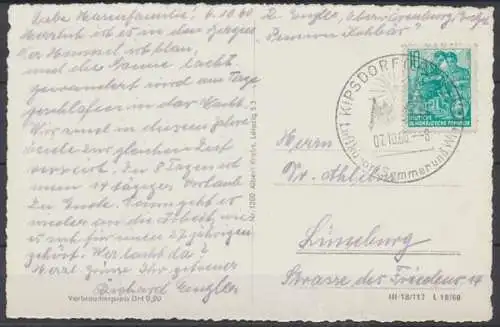 Liebe Hasenfamilie! 6.10.60
Herrlich ist es in den Bergen
Der Himmel ist blau,
und die Sonne lacht.
gewandert wird am Tage
geschlafen in der Nacht.
Wir sind in diesem Jahre
beide zur gleichen Zeit
verreist. In 8 Tagen ist
unser 14 tägiger Urlaub
zu Ende. Dann geht es
wieder an die Arbeit, wie
es sich für einen 27 jährigen
gehört! Wer lacht da?
Herzl. grüsse Ihr getreuer
Richard Engler
Verbraucherpreis DM 0,20
Nr. 1200 Albert Leipzig S 3
R. Engler, Oberbärenburg
Pension
10
DEUTSCHE
DEMOKRATISCHE REPUBLIK
KIPSDORF
07.10.60 -8
Sommer und
Herrn
Dr.
Lüneburg
Strasse des Friedens 14
III-18/117 L 18/60